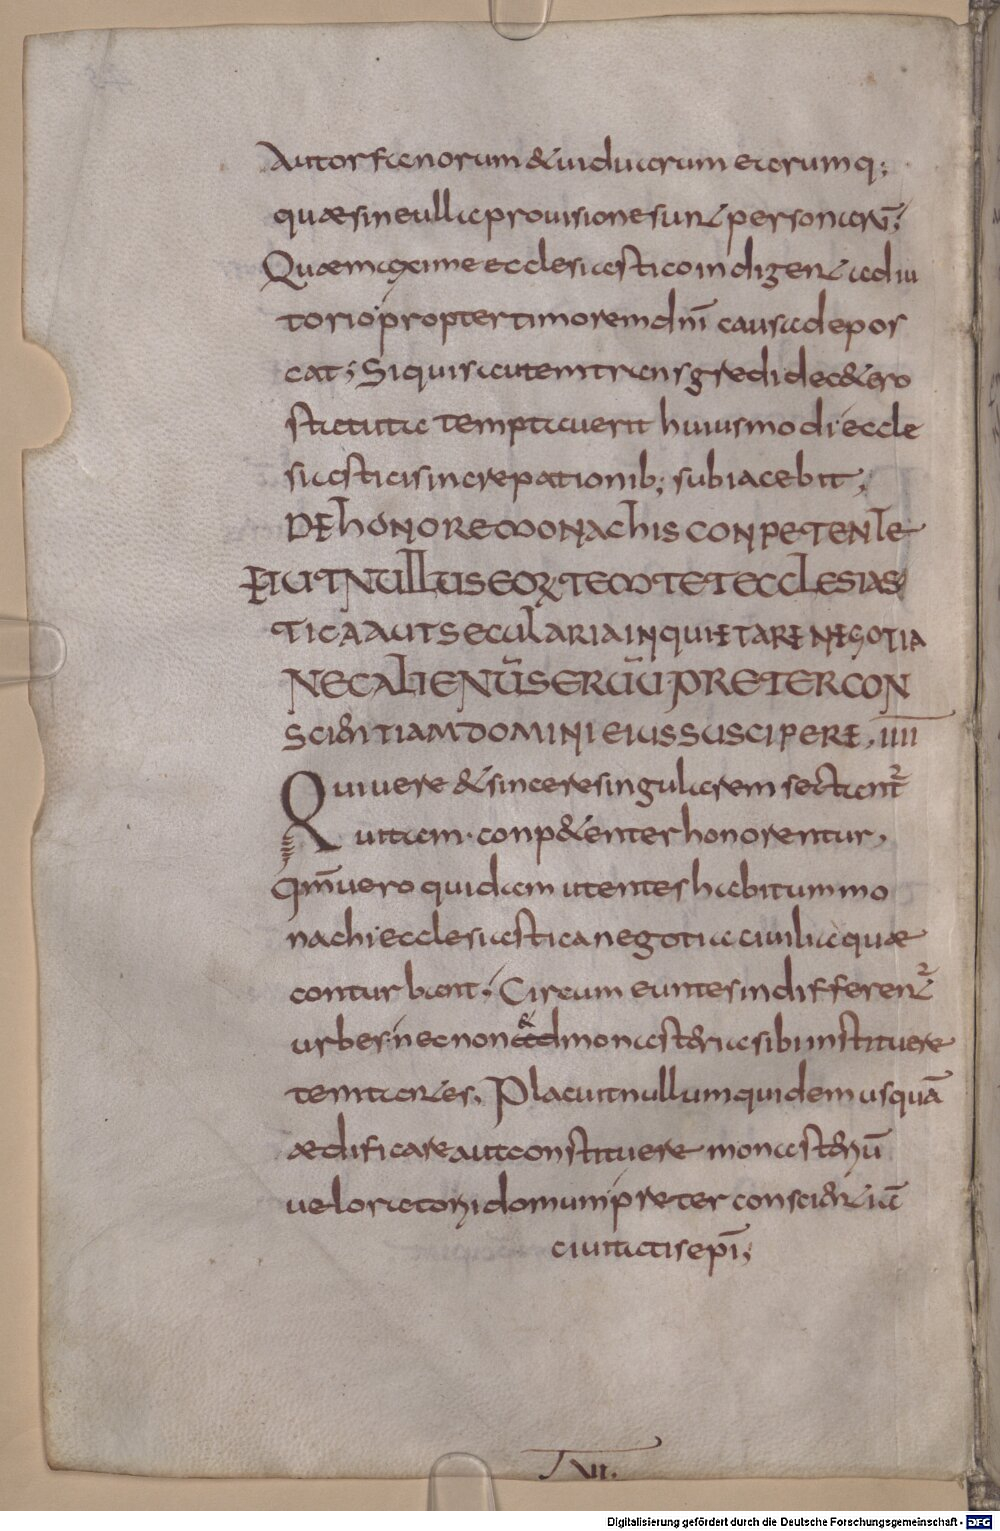 Aut orfanorum & uiduarum earumq;
quae sine ulla prouisione sunt personarū;
Quae maxime ecclesiastico indigent adiu
torio propter timorem dn̄i causa depos
cat; Si quis autem transgredi de c&ero
statuta temptauerit huiusmodi eccle
siasticis increpationib; subiacebit;
DE honORE MONAchIS CONPETENTE
ET UT NULLUS EORꝝ TEMTET ECCLESIAS
TICA AUT SECULARIA INQUIETARE NEGOTIA
NEC ALIENŪ SERUŪ PRETER CON
SCIENTIAM DOMINI EIUS SUSCIPERE. IIII
Qui uere & sincere singularem sectant᷑
uitam. conp&enter honorentur.
Qm̄ uero quidam utentes habitum mo
nachi ecclesiastica negotia ciuiliaquae
conturbant; Circumeuntes indifferent᷑
urbes. necnon & ad monasteria sibi instituere
temtantes. Placuit nullum quidem usquā
aedificare aut constituere monasteriū
uel oratorii domum preter conscientiā
ciuitatis ep̄i;
Digitalisierung gefördert durch die Deutsche Forschungsgemeinschaft - DFG